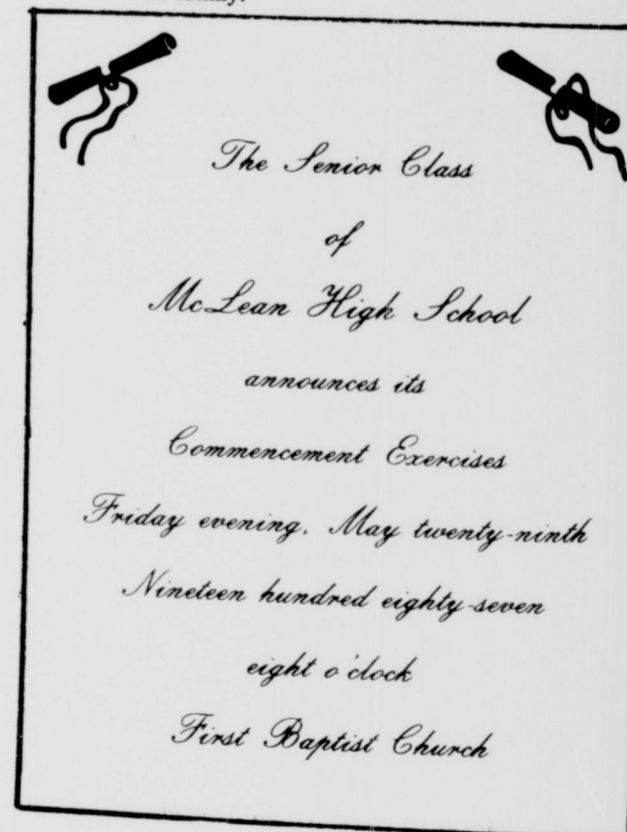 The Senior Class
of
McLean High School
announces its
Commencement Exercises
Friday evening, May twenty-ninth
Nineteen hundred eighty-seven
eight o'clock
First Baptist Church